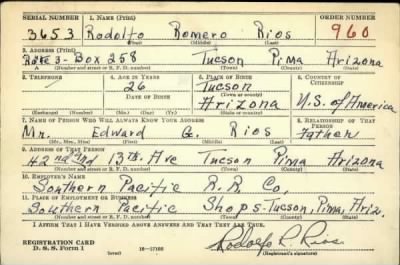 SERIAL NUMBER 1. NAME (Print) ORDER NUMBER
3653 Rodolfo Romero Rios 960
(First) (Middle) (Last)
2. ADDRESS (Print)
Rote 3 - Box 258 Tucson Pima Arizona
(Number and street or R. F. D. number) (Town) (County) (State)
3. TELEPHONE 4. AGE IN YEARS 5. PLACE OF BIRTH 6. COUNTRY OF CITIZENSHIP
26 Tucson
DATE OF BIRTH (Town or county)
Arizona U.S. of America
(Exchange) (Number) (Mo.) (Day) (Yr.) (State or country)
7. NAME OF PERSON WHO WILL ALWAYS KNOW YOUR ADDRESS 8. RELATIONSHIP OF THAT PERSON
Mr. Edward G. Rios Father
(Mr., Mrs., Miss) (First) (Middle) (Last)
9. ADDRESS OF THAT PERSON
42nd And 13th. Ave Tucson Pima Arizona
(Number and street or R. F. D. number) (Town) (County) (State)
10. EMPLOYER'S NAME
Southern Pacific R.R. Co.
11. PLACE OF EMPLOYMENT OR BUSINESS
Southern Pacific Shops - Tucson, Pima, Ariz.
(Number and street or R. F. D. number) (Town) (County) (State)
I AFFIRM THAT I HAVE VERIFIED ABOVE ANSWERS AND THAT THEY ARE TRUE.
REGISTRATION CARD
D. S. S. Form 1 16-17105 Rodolfo R. Rios
(over) (Registrant's signature)